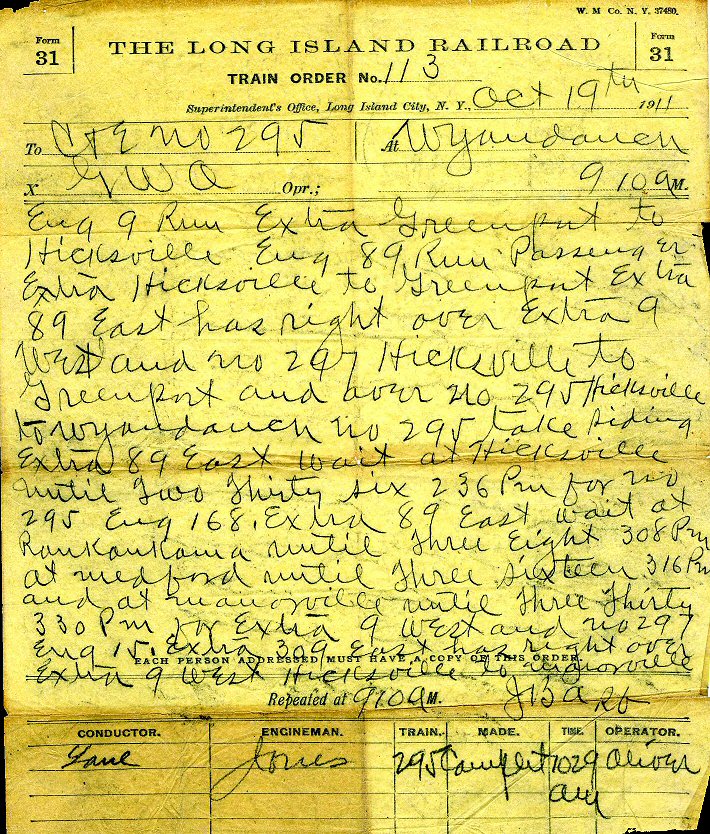 W. M Co. N. Y. 37480.
Form 31
Form 31
THE LONG ISLAND RAILROAD
TRAIN ORDER No. 113
Superintendent's Office, Long Island City, N. Y., Oct 19th 1911
To C&E no 295 At Wyandanch
X GWO Opr.; 9 10 a M.
Eng 9 Run Extra Greenport to
Hicksville Eng 89 Run Passenger
Extra Hicksville to Greenport Extra
89 East has right over Extra 9
West and no 297 Hicksville to
Greenport and over no 295 Hicksville
to Wyandanch no 295 take siding
Extra 89 East wait at Hicksville
until Two Thirty six 236 Pm for no
295 Eng 168. Extra 89 East wait at
Ronkonkoma until Three Eight 308 Pm
at medford until Three Sixteen 316 Pm
and at manorville until Three Thirty
330 Pm for Extra 9 West and no 297
Eng 15. Extra 309 East has right over
EACH PERSON ADDRESSED MUST HAVE A COPY OF THIS ORDER.
Extra 9 West Hicksville to manorville
Repeated at 910a M.
CONDUCTOR. ENGINEMAN. TRAIN. MADE. TIME. OPERATOR.
Lane Jones 295 Complet 1029 Oliver
am